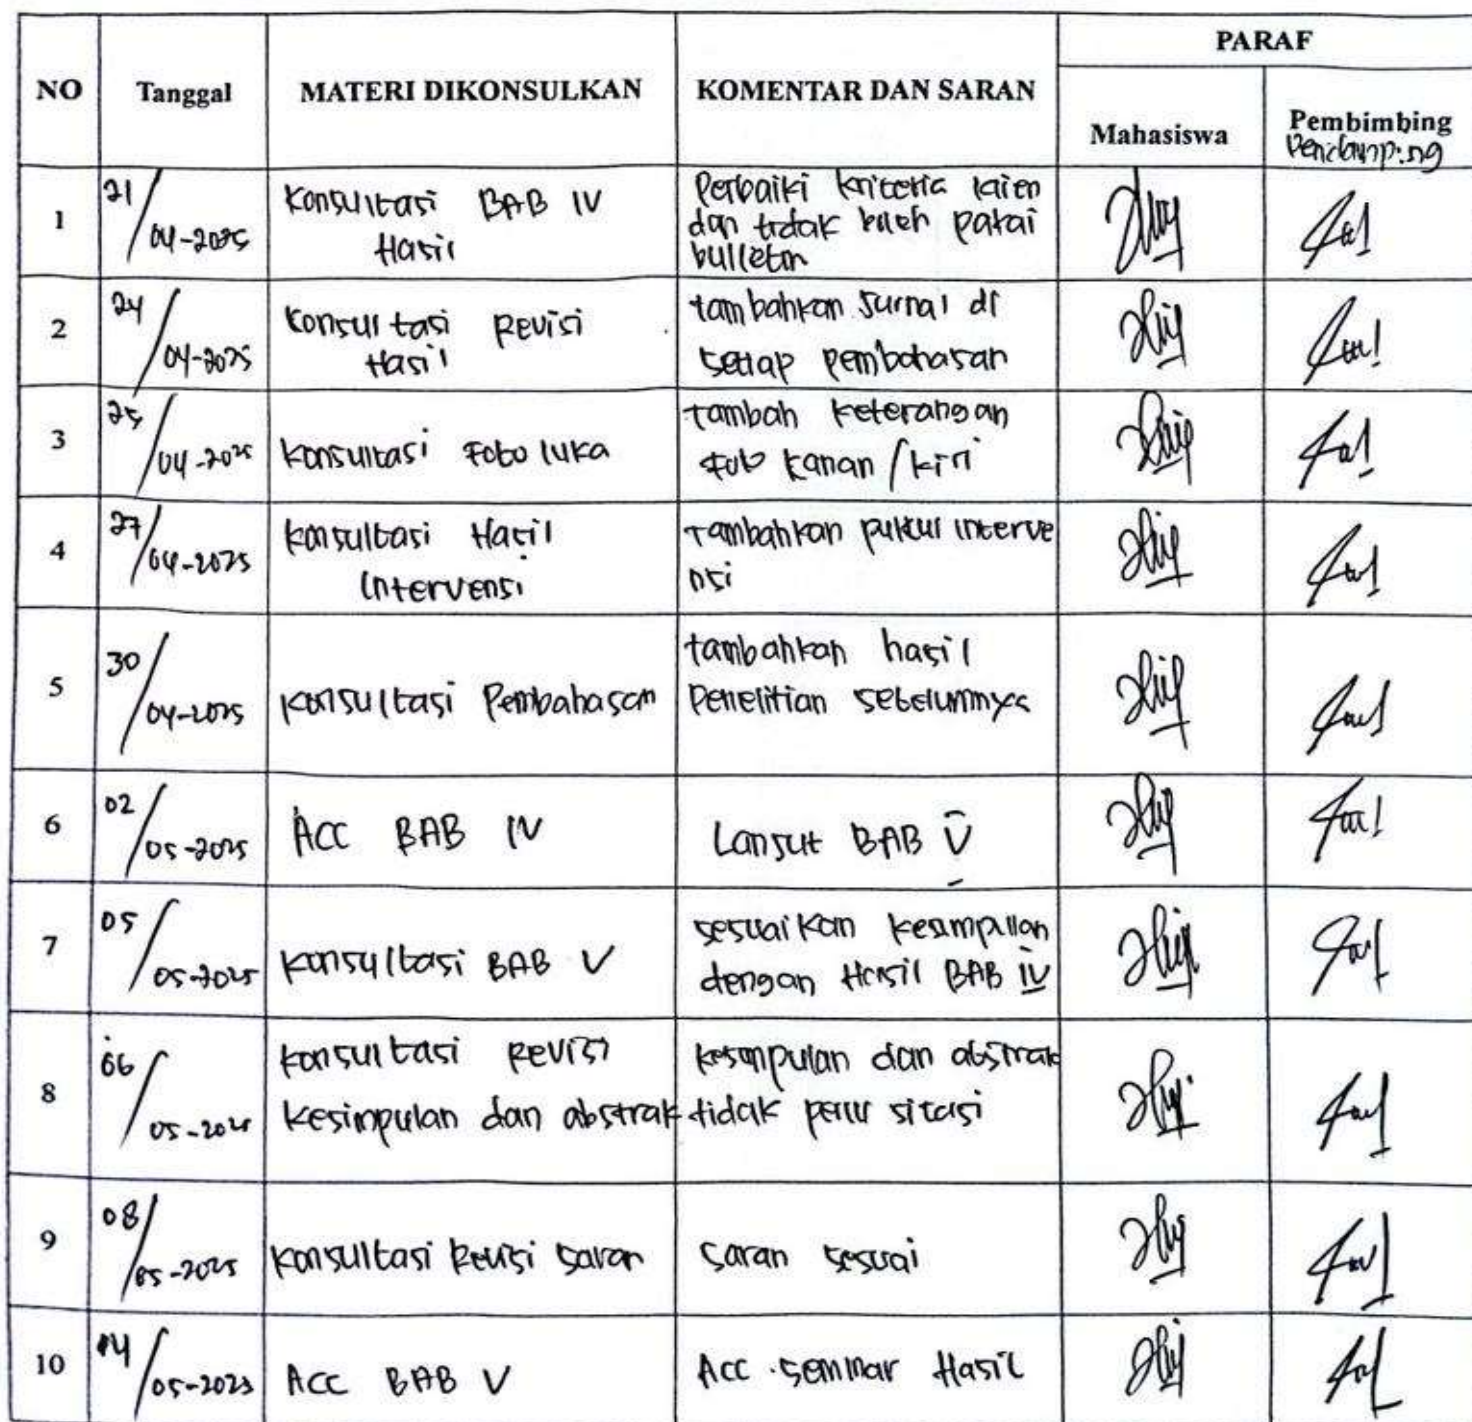 NO Tanggal MATERI DIKONSULKAN KOMENTAR DAN SARAN PARAF
Mahasiswa Pembimbing
Pendamping
1 21/04-2025 Konsultasi BAB IV Perbaiki kriteria klien
Hasil dan tidak boleh pakai
bulletin
2 24/04-2025 Konsultasi Revisi tambahkan Jurnal di
Hasil setiap pembahasan
3 25/04-2025 Konsultasi Foto luka tambah keterangan
kanan/kiri
4 27/04-2025 Konsultasi Hasil Tambahkan pukul interve
Intervensi nsi
5 30/04-2025 Konsultasi Pembahasan tambahkan hasil
Penelitian sebelumnya
6 02/05-2025 ACC BAB IV Lanjut BAB V
7 05/05-2025 Konsultasi BAB V sesuaikan kesimpulan
dengan Hasil BAB IV
8 06/05-2025 Konsultasi Revisi kesimpulan dan abstrak
kesimpulan dan abstrak tidak perlu sitasi
9 08/05-2025 Konsultasi Revisi Saran Saran sesuai
10 14/05-2025 ACC BAB V Acc seminar Hasil